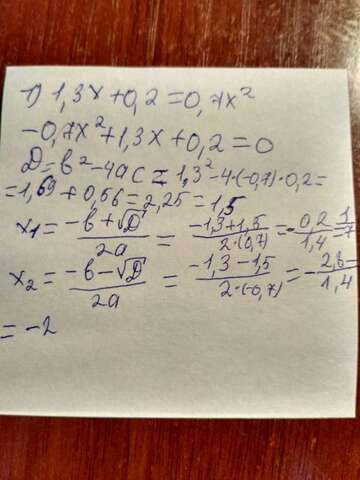 1) 1,3x+0,2=0,7x²
-0,7x²+1,3x+0,2=0
D=b²-4ac=1,3²-4·(-0,7)·0,2=
=1,69+0,56=2,25=1,5
x₁=(-b+√D)/2a=(-1,3+1,5)/(2·(-0,7))=-0,2/1,4=1/7
x₂=(-b-√D)/2a=(-1,3-1,5)/(2·(-0,7))=-2,8/1,4=
=-2